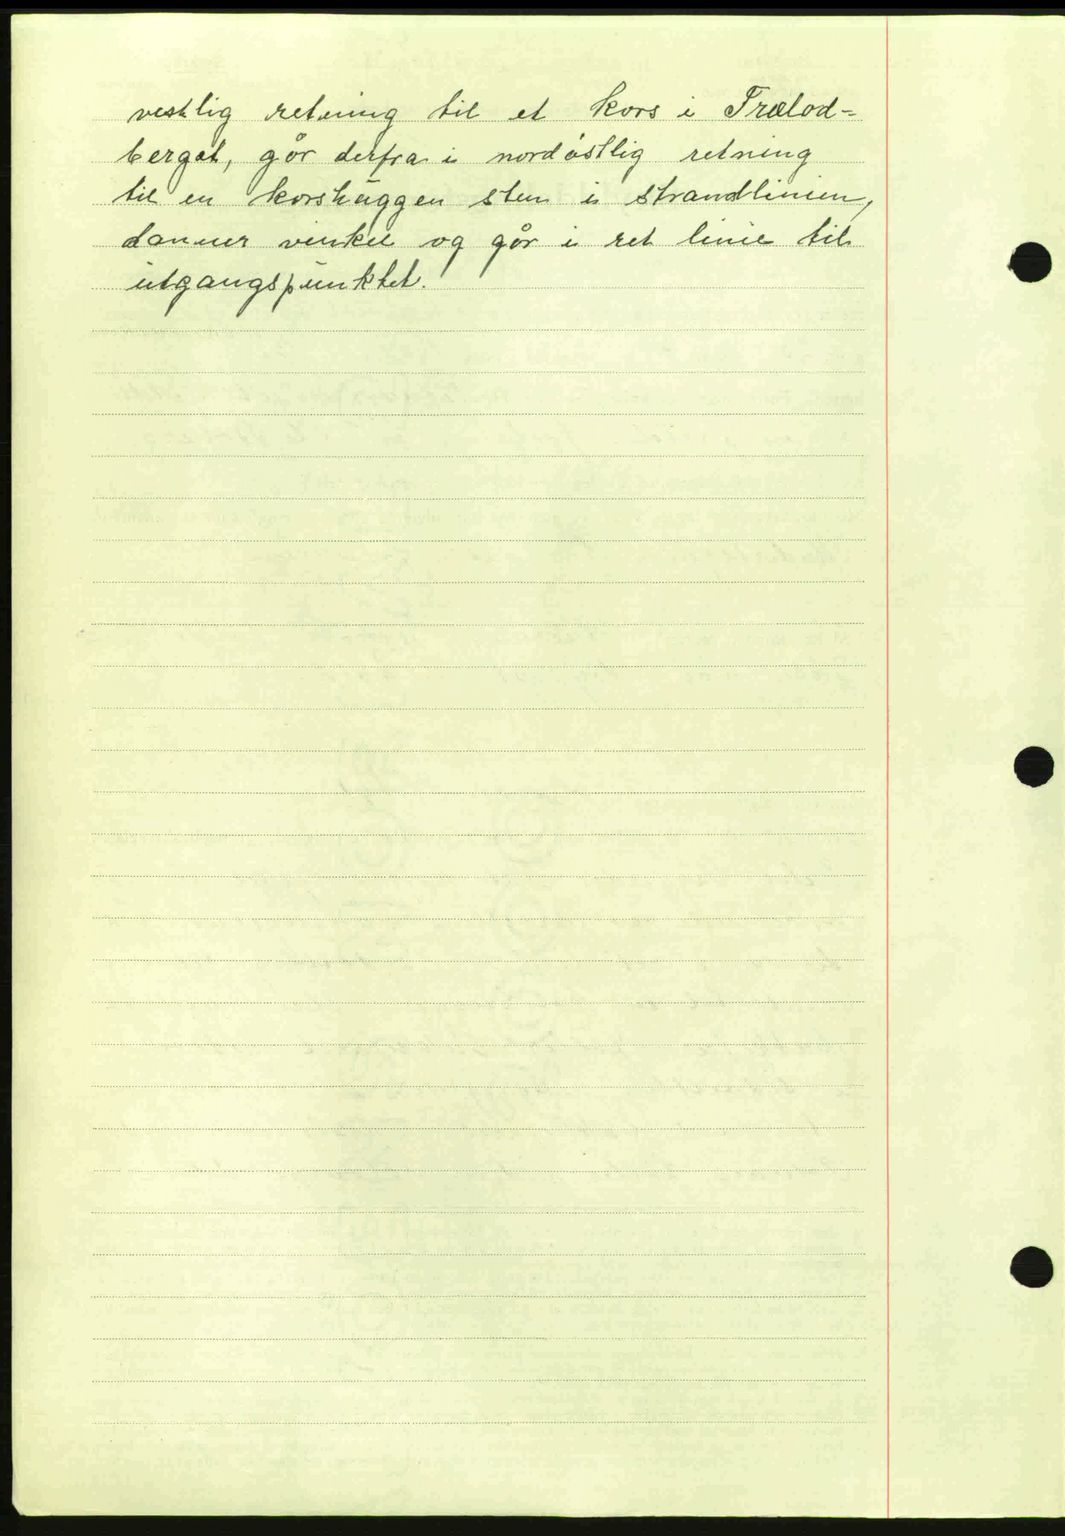 vestlig retning til et kors i Trælod-
berget, går derfra i nordöstlig retning
til en korshuggen sten i strandlinien,
danner vinkel og går i ret linie til
utgangspunktet.